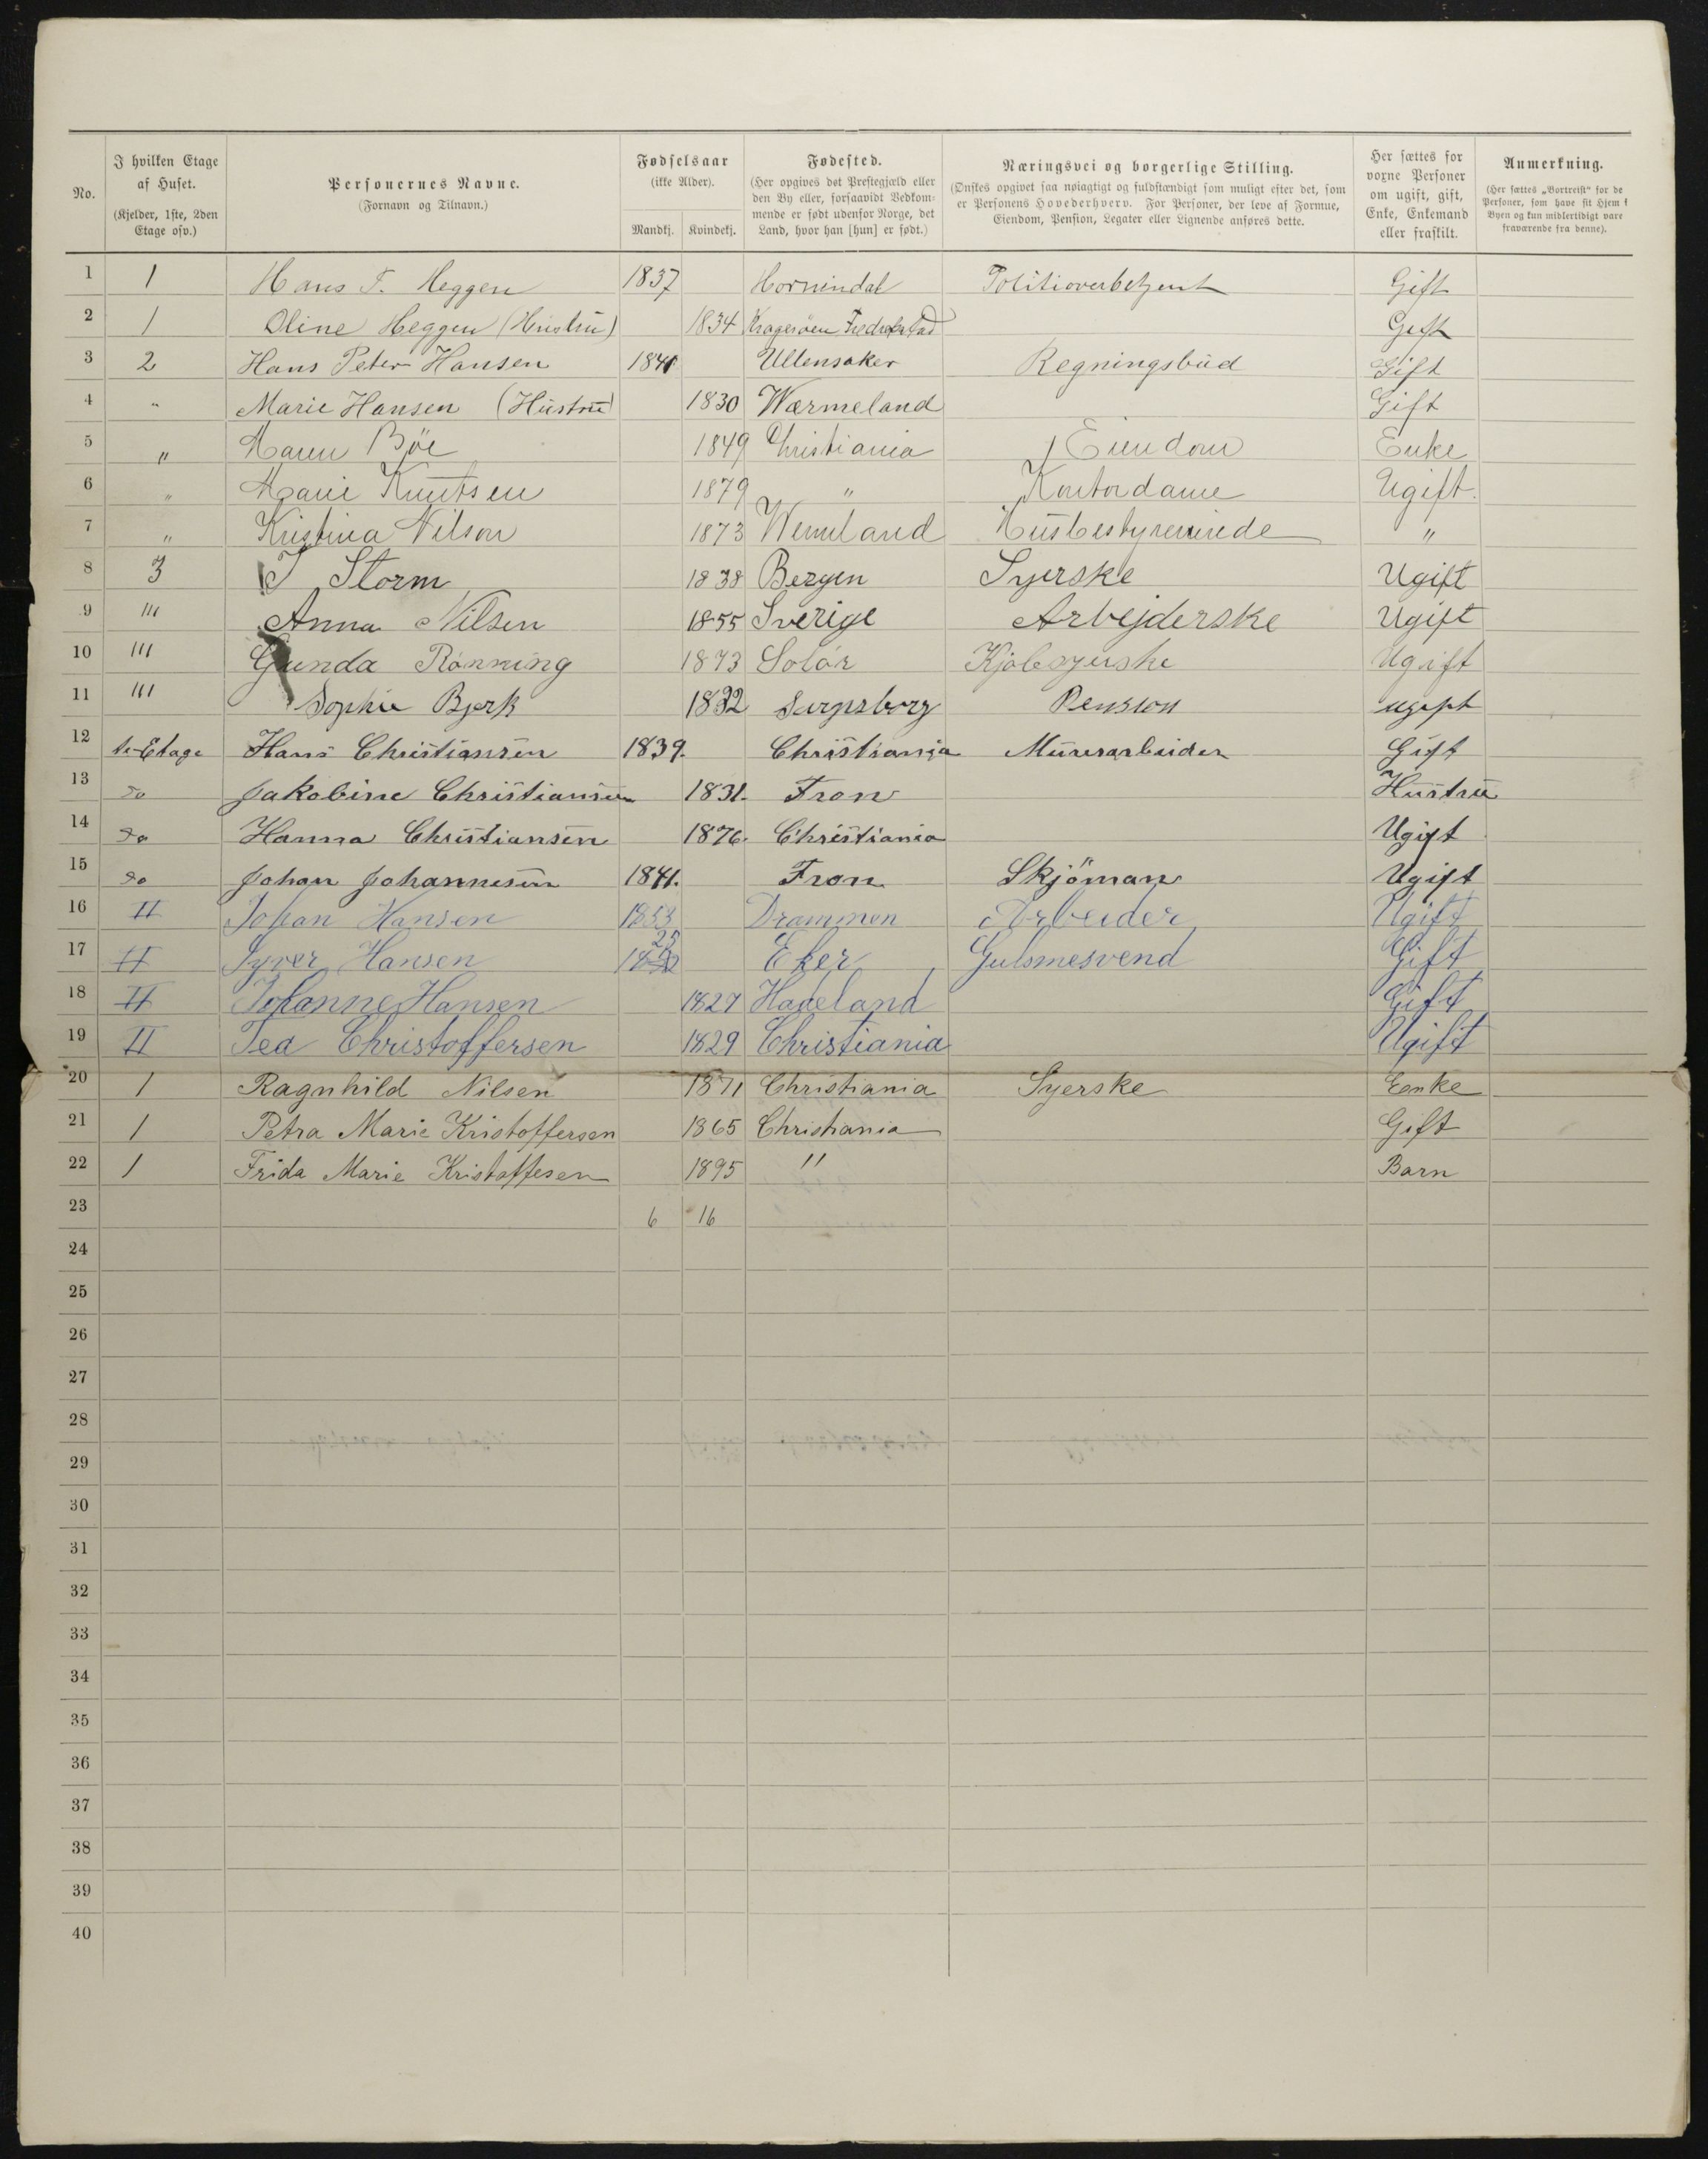 No. | I hvilken Etage af Huset. (Kjelder, 1ste, 2den Etage osv.) | Personernes Navne. (Fornavn og Tilnavn.) | Fødselsaar (ikke Alder). Mandkj. Kvindekj. | Fødested. (Her opgives det Prestegjæld eller den By eller, forsaavidt Vedkommende er født udenfor Norge, det Land, hvor han [hun] er født.) | Næringsvei og borgerlige Stilling. (Ønskes opgivet saa nøiagtigt og fuldstændigt som muligt efter det, som er Personens Hovederhverv. For Personer, der leve af Formue, Eiendom, Pension, Legater eller Lignende anføres dette. | Her sættes for voxne Personer om ugift, gift, Enke, Enkemand eller fraskilt. | Anmerkning. (Her sættes „Bortreist" for de Personer, som have sit Hjem i Byen og kun midlertidigt vare fraværende fra denne).
1 1 Hans T. Heggen 1837 Hornindal Politioverbetjent Gift
2 1 Oline Heggen (Hustru) 1834 Kragerøen Fredrikstad Gift
3 2 Hans Peter Hansen 1841 Ullensaker Regningsbud Gift
4 " Marie Hansen (Hustru) 1830 Wærmeland Gift
5 " Maren Böe 1849 Christiania Eiendom Enke
6 " Marie Knutsen 1879 " Kontordame Ugift.
7 " Kristina Nilson 1873 Wermland Husbestyrerinde "
8 3 J Storm 1838 Bergen Syerske Ugift
9 "' Anna Nilsen 1855 Sverige Arbejderske Ugift
10 "' Gunda Rönning 1873 Solör Kjolesyerske Ugift
11 "' Sophie Bjerk 1832 Sarpsborg Pension ugift
12 1te Etage Hans Christiansen 1839. Christiania Murerarbeider Gift
13 do Jakobine Christiansen 1831. Fron Hustru
14 do Hanna Christiansen 1876. Christiania Ugift
15 do Johan Johannesen 1841. Fron Skjöman Ugift
16 II Johan Hansen 1853 Drammen Arbeider Ugift
17 II Syver Hansen 18 25 Eker Gulsmesvend Gift
18 II Johanne Hansen 1827 Hadeland Gift
19 II Tea Christoffersen 1829 Christiania Ugift
20 1 Ragnhild Nilsen 1871 Christiania Syerske Enke
21 1 Petra Marie Kristoffersen 1865 Christiania Gift
22 1 Frida Marie Kristoffesen 1895 " Barn
23 6 16
24
25
26
27
28
29
30
31
32
33
34
35
36
37
38
39
40